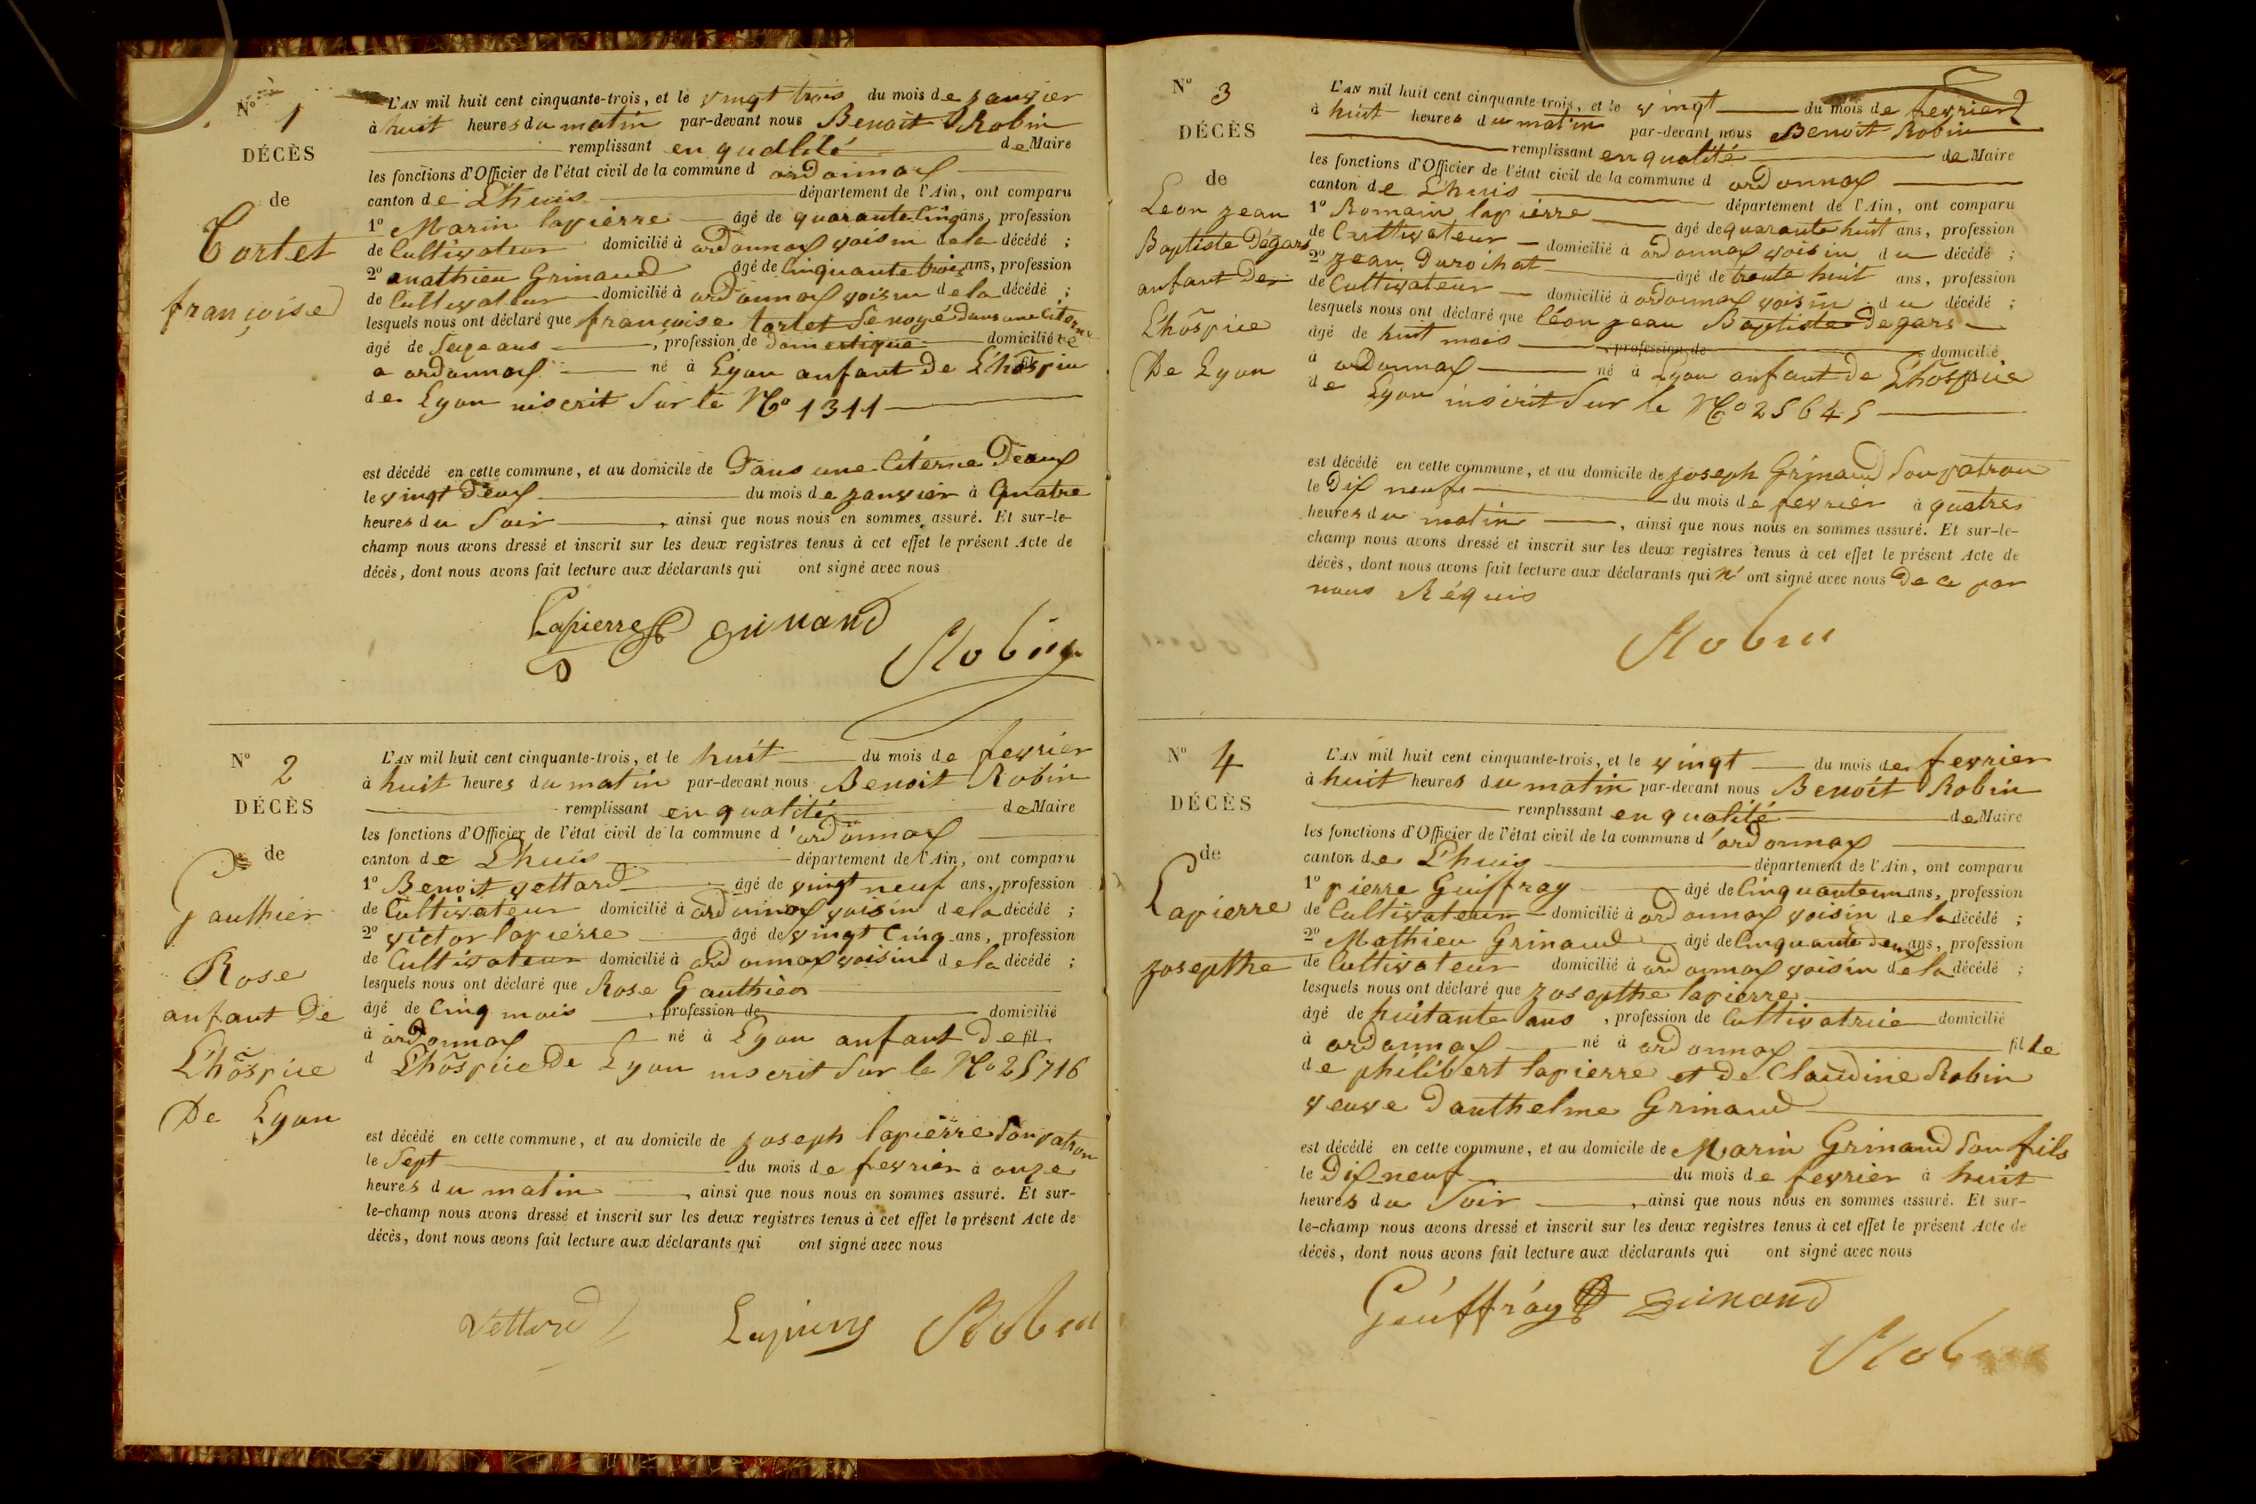 N° 1
DÉCÈS
de
Tortet
françoise
L'AN mil huit cent cinquante-trois, et le vingt trois du mois de janvier
à huit heures du matin par-devant nous Benoit Robin
remplissant en qualité de Maire
les fonctions d'Officier de l'état civil de la commune d ordonnax
canton de L'huis département de l'Ain, ont comparu
1° Marin lapierre âgé de quarante Cinq ans, profession
de Cultivateur domicilié à ordonnax voisin de la décédé ;
2° mathieu Grinand âgé de Cinquante trois ans, profession
de Cultivateur domicilié à ordonnax voisin de la décédé ;
lesquels nous ont déclaré que françoise tortet Se noyé dans une Citerne
âgé de Seize ans , profession de domestique domicilié
a ordonnax né à Lyon anfant de L'hôspice
de Lyon niscrit Sur le N° 1311
est décédé en cette commune, et au domicile de Dans une Citerne Deaux
le vingt Deux du mois de janvier à Quatre
heures du Soir , ainsi que nous nous en sommes assuré. Et sur-le-
champ nous avons dressé et inscrit sur les deux registres tenus à cet effet le présent Acte de
décès, dont nous avons fait lecture aux déclarants qui ont signé avec nous
Lapierre Grinand
Robin
N° 2
DÉCÈS
de
Gauthier
Rose
anfant De
L'hôspice
De Lyon
L'AN mil huit cent cinquante-trois, et le huit du mois de fevrier
à huit heures du matin par-devant nous Benoit Robin
remplissant en qualité de Maire
les fonctions d'Officier de l'état civil de la commune d'ordonnax
canton de L'huis département de l'Ain, ont comparu
1° Benoit vettard âgé de vingt neuf ans, profession
de Cultivateur domicilié à ordonnax voisin de la décédé ;
2° victor lapierre âgé de vingt Cinq ans, profession
de Cultivateur domicilié à ordonnax voisin de la décédé ;
lesquels nous ont déclaré que Rose Gauthier
âgé de Cinq mois , profession de domicilié
à ordonnax né à Lyon anfant De fil
d L'hôspice De Lyon inscrit Sur le N° 25716
est décédé en cette commune, et au domicile de joseph lapierre Son patron
le Sept du mois de fevrier à onze
heures du matin , ainsi que nous nous en sommes assuré. Et sur-
le-champ nous avons dressé et inscrit sur les deux registres tenus à cet effet le présent Acte de
décès, dont nous avons fait lecture aux déclarants qui ont signé avec nous
Vettard Lapierre Robin
N° 3
DÉCÈS
de
Leon jean
Baptiste Dégars
anfant De
L'hôspice
De Lyon
L'AN mil huit cent cinquante-trois, et le vingt du mois de fevrier
à huit heures du matin par-devant nous Benoit Robin
remplissant en qualité de Maire
les fonctions d'Officier de l'état civil de la commune d ordonnax
canton de L'huis département de l'Ain, ont comparu
1° Romain lapierre âgé de quarante huit ans, profession
de Cultivateur domicilié à ordonnax voisin du décédé ;
2° jean Durochat âgé de trente huit ans, profession
de Cultivateur domicilié à ordonnax voisin du décédé ;
lesquels nous ont déclaré que léon jean Baptiste Degars
âgé de huit mois , profession de domicilié
à ordonnax né à Lyon anfant de L'hôspice
de Lyon inscrit Sur le N° 25645
est décédé en cette commune, et au domicile de joseph Grinand Son patron
le Dix neuf du mois de fevrier à quatre
heures du matin , ainsi que nous nous en sommes assuré. Et sur-le-
champ nous avons dressé et inscrit sur les deux registres tenus à cet effet le présent Acte de
décès, dont nous avons fait lecture aux déclarants qui n' ont signé avec nous De ce par
nous Réquis
Robin
N° 4
DÉCÈS
de
Lapierre
josepthe
L'AN mil huit cent cinquante-trois, et le vingt du mois de fevrier
à huit heures du matin par-devant nous Benoit Robin
remplissant en qualité de Maire
les fonctions d'Officier de l'état civil de la commune d'ordonnax
canton de L'huis département de l'Ain, ont comparu
1° pierre Guiffray âgé de Cinquante un ans, profession
de Cultivateur domicilié à ordonnax voisin de la décédé ;
2° Mathieu Grinand âgé de Cinquante deux ans, profession
de Cultivateur domicilié à ordonnax voisin de la décédé ;
lesquels nous ont déclaré que josepthe lapierre
âgé de huitante ans , profession de Cultivatrice domicilié
à ordonnax né à ordonnax fille
de philibert lapierre et de Claudine Robin
veuve Danthelme Grinand
est décédé en cette commune, et au domicile de Marin Grinand Son fils
le Dix neuf du mois de fevrier à huit
heures du Soir , ainsi que nous nous en sommes assuré. Et sur-
le-champ nous avons dressé et inscrit sur les deux registres tenus à cet effet le présent Acte de
décès, dont nous avons fait lecture aux déclarants qui ont signé avec nous
Geuffray Grinand
Robin